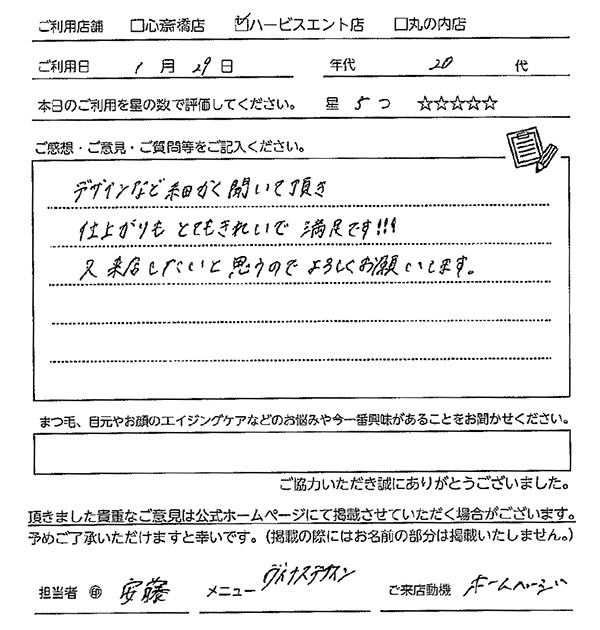 ご利用店舗 □心斎橋店 ☑ハービスエント店 □丸の内店
ご利用日 1 月 29 日 年代 20 代
本日のご利用を星の数で評価してください。 星 5 つ ☆☆☆☆☆
ご感想・ご意見・ご質問等をご記入ください。
デザインなど細かく聞いて頂き
仕上がりも とてもきれいで 満足です!!!
又 来店したいと思うので よろしくお願いします。
まつ毛、目元やお顔のエイジングケアなどのお悩みや今一番興味があることをお聞かせください。
ご協力いただき誠にありがとうございました。
頂きました貴重なご意見は公式ホームページにて掲載させていただく場合がございます。
予めご了承いただけますと幸いです。(掲載の際にはお名前の部分は掲載いたしません。)
担当者 ㊞ 安藤 メニュー ヴィナスデザイン ご来店動機 ホームページ